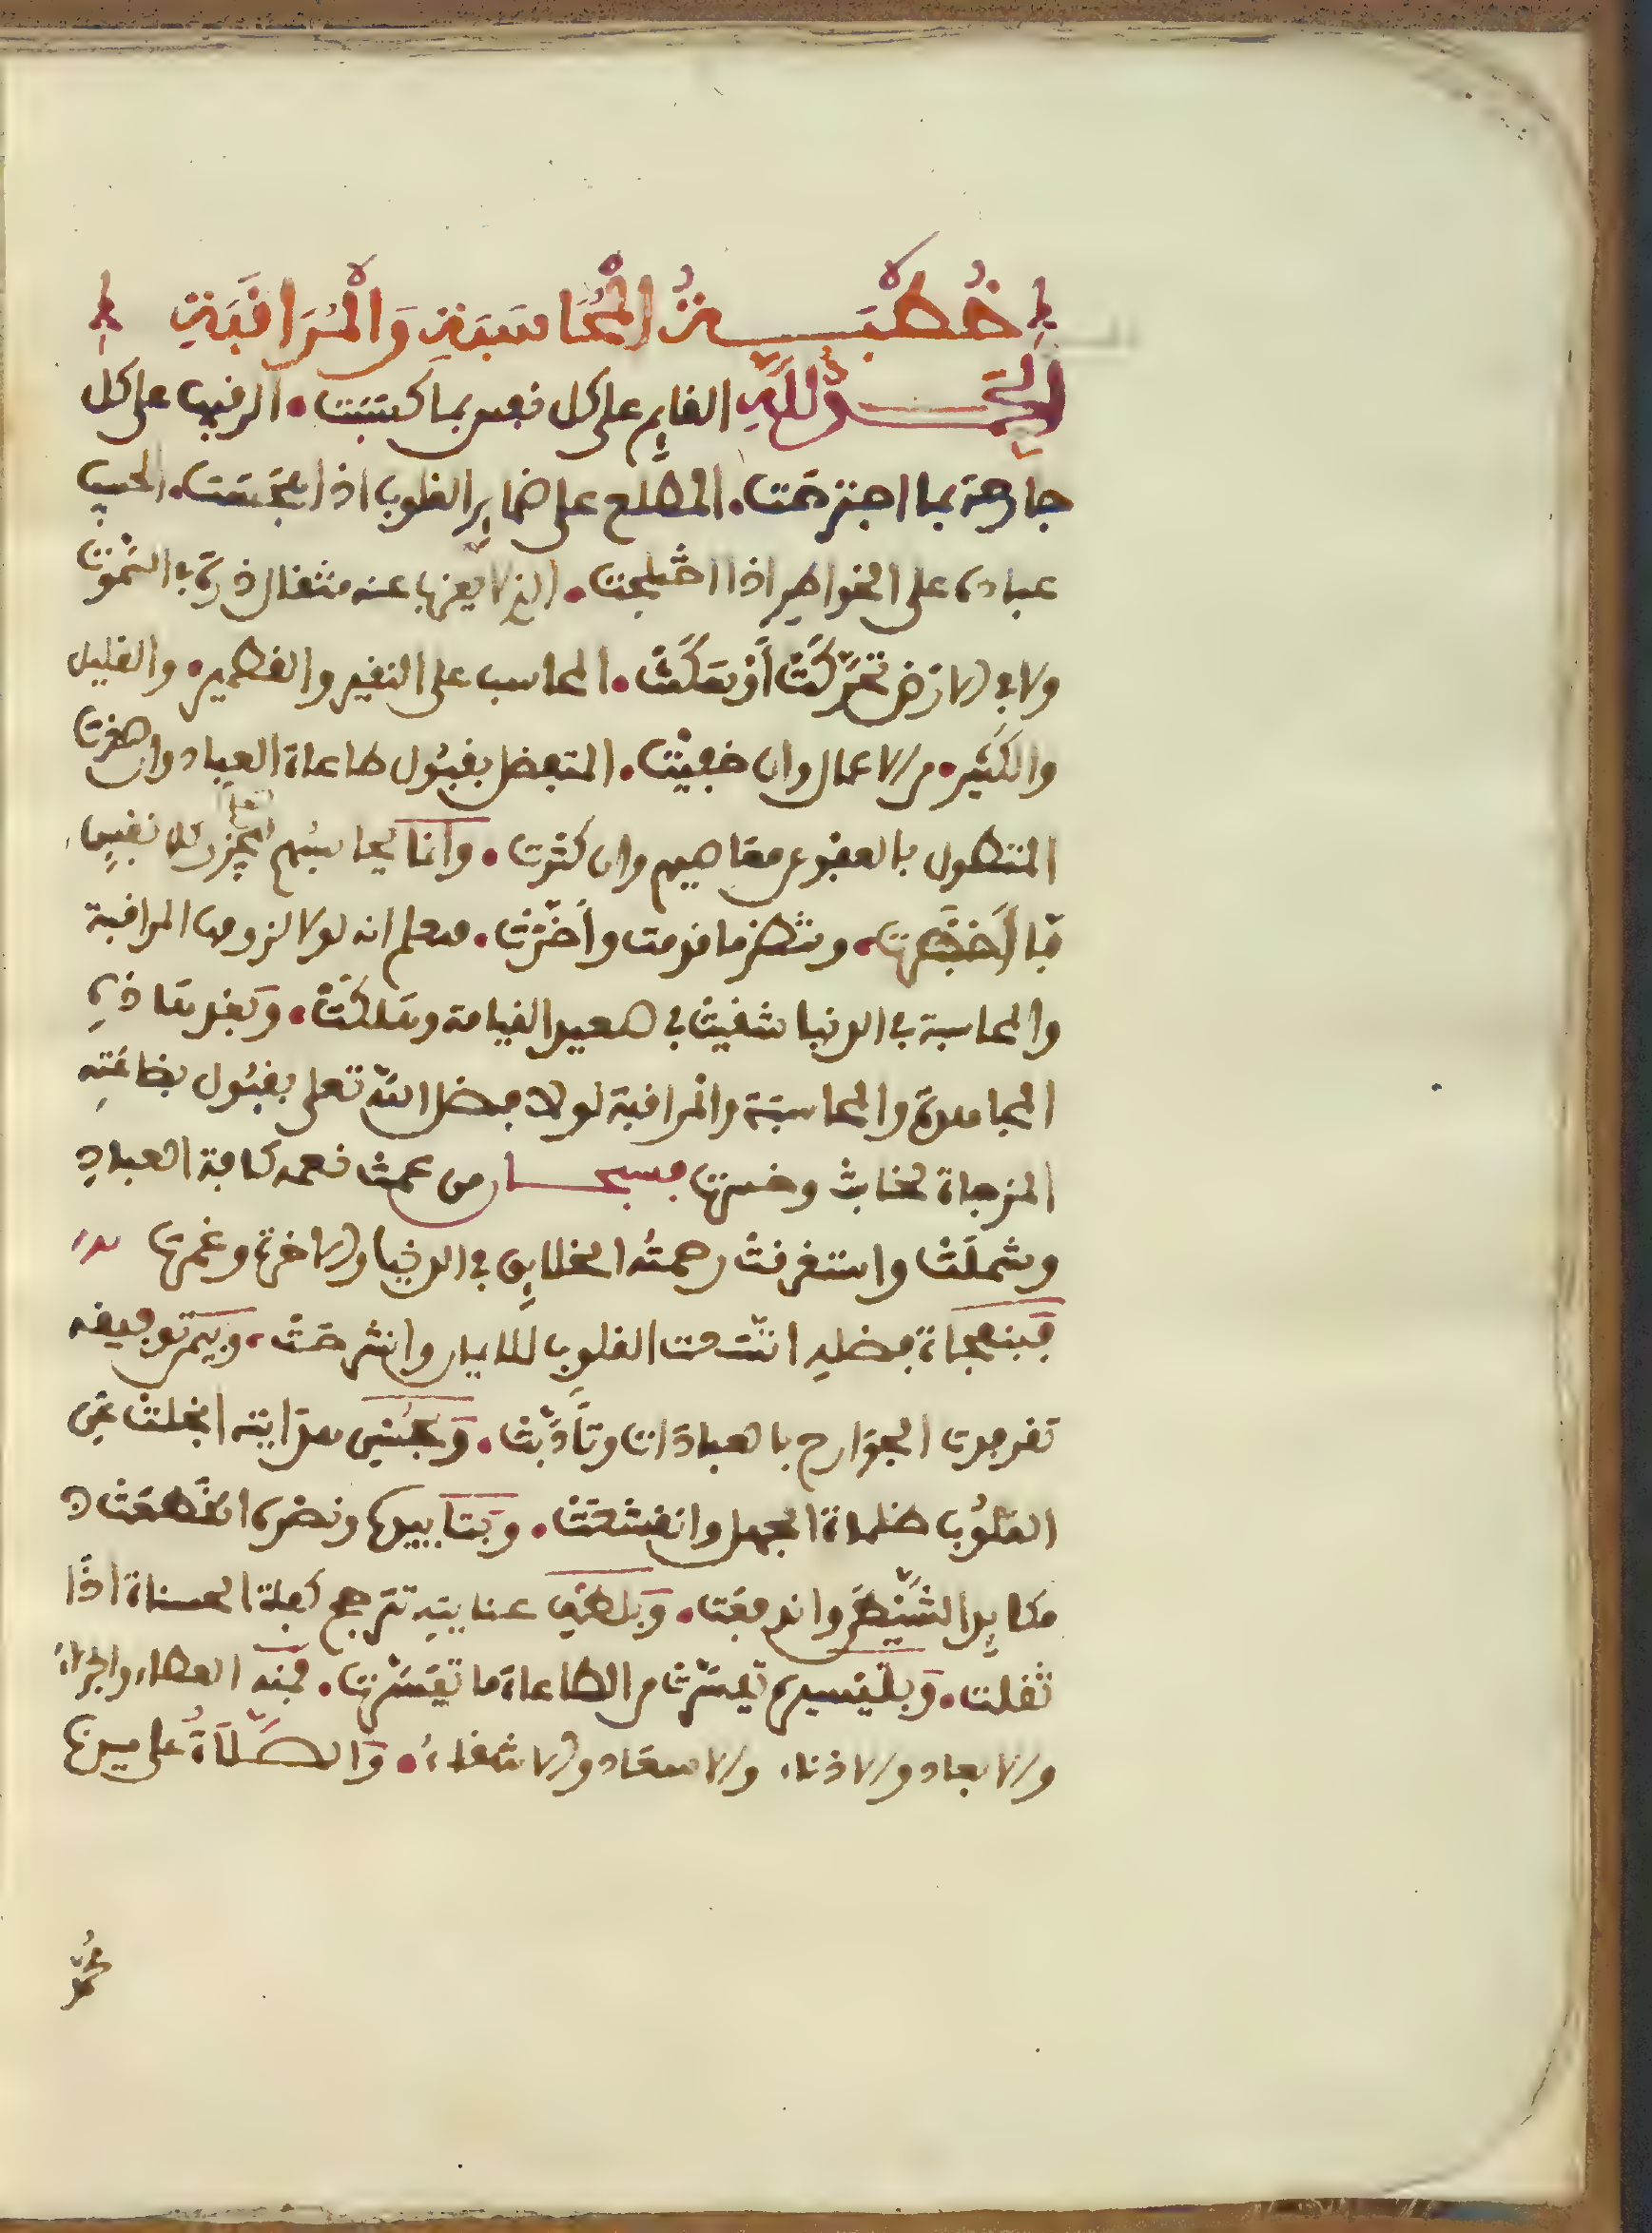 خُطْبَةُ الْمُحَاسَبَةِ وَالْمُرَاقَبَةِ
الحمد لله القايم على كل نفس بما كسبت. الرقيب على كل
جارحة بما اجترحت. المطلع على ضماير القلوب اذا هجست. الحسيب
عباده على الخواطر اذا اختلجت. الذي لا يعزب عنه مثقال ذرة في السموت
ولا في الارض تحركت أو سكنت. المحاسب على النقير والقطمير. والقليل
والكثير. من الاعمال وان خفيت. المتفضل بقبول طاعاة العباد وان صغرت
المتطول بالعفو عن معاصيهم وان كثرت. وانما يحاسبهم لتجزى كل نفس
ما أحضرت. وتنظر ما قدمت وأخرت. فتعلم انه لولا لزومها المراقبة
والمحاسبة في الدنيا شقيت في صعيد القيامة وهلكت. وبعد هذا
المجاهدة والمحاسبة والمراقبة لولا فضل الله تعلى بقبول بضاعته
المزجاة لخابت وخسرت فسبحان من عمت نعمه كافة العباد
وشملت واستغرقت رحمته الخلايق في الدنيا والاخرة وغمرت
فبنفحاة فضله اتسعت القلوب للايمان وانشرحت. وبيمن توفيقه
تقيدت الجوارح بالعبادات وتأدبت. وبحسن هدايته انجلت عن
القلوب ظلماة الجهل وانقشعت. وبتاييده ونصره انقطعت
مكايد الشيطن واندفعت. وبلطف عنايته تترجح كفة الحسناة اذا
ثقلت. وبتيسيره تيسرت من الطاعاة ما تيسرت. فمنه العطاء والجزاء
والابعاد والادناء والاسعاد والاشقاء. والصلاة على سيدنا
محمد